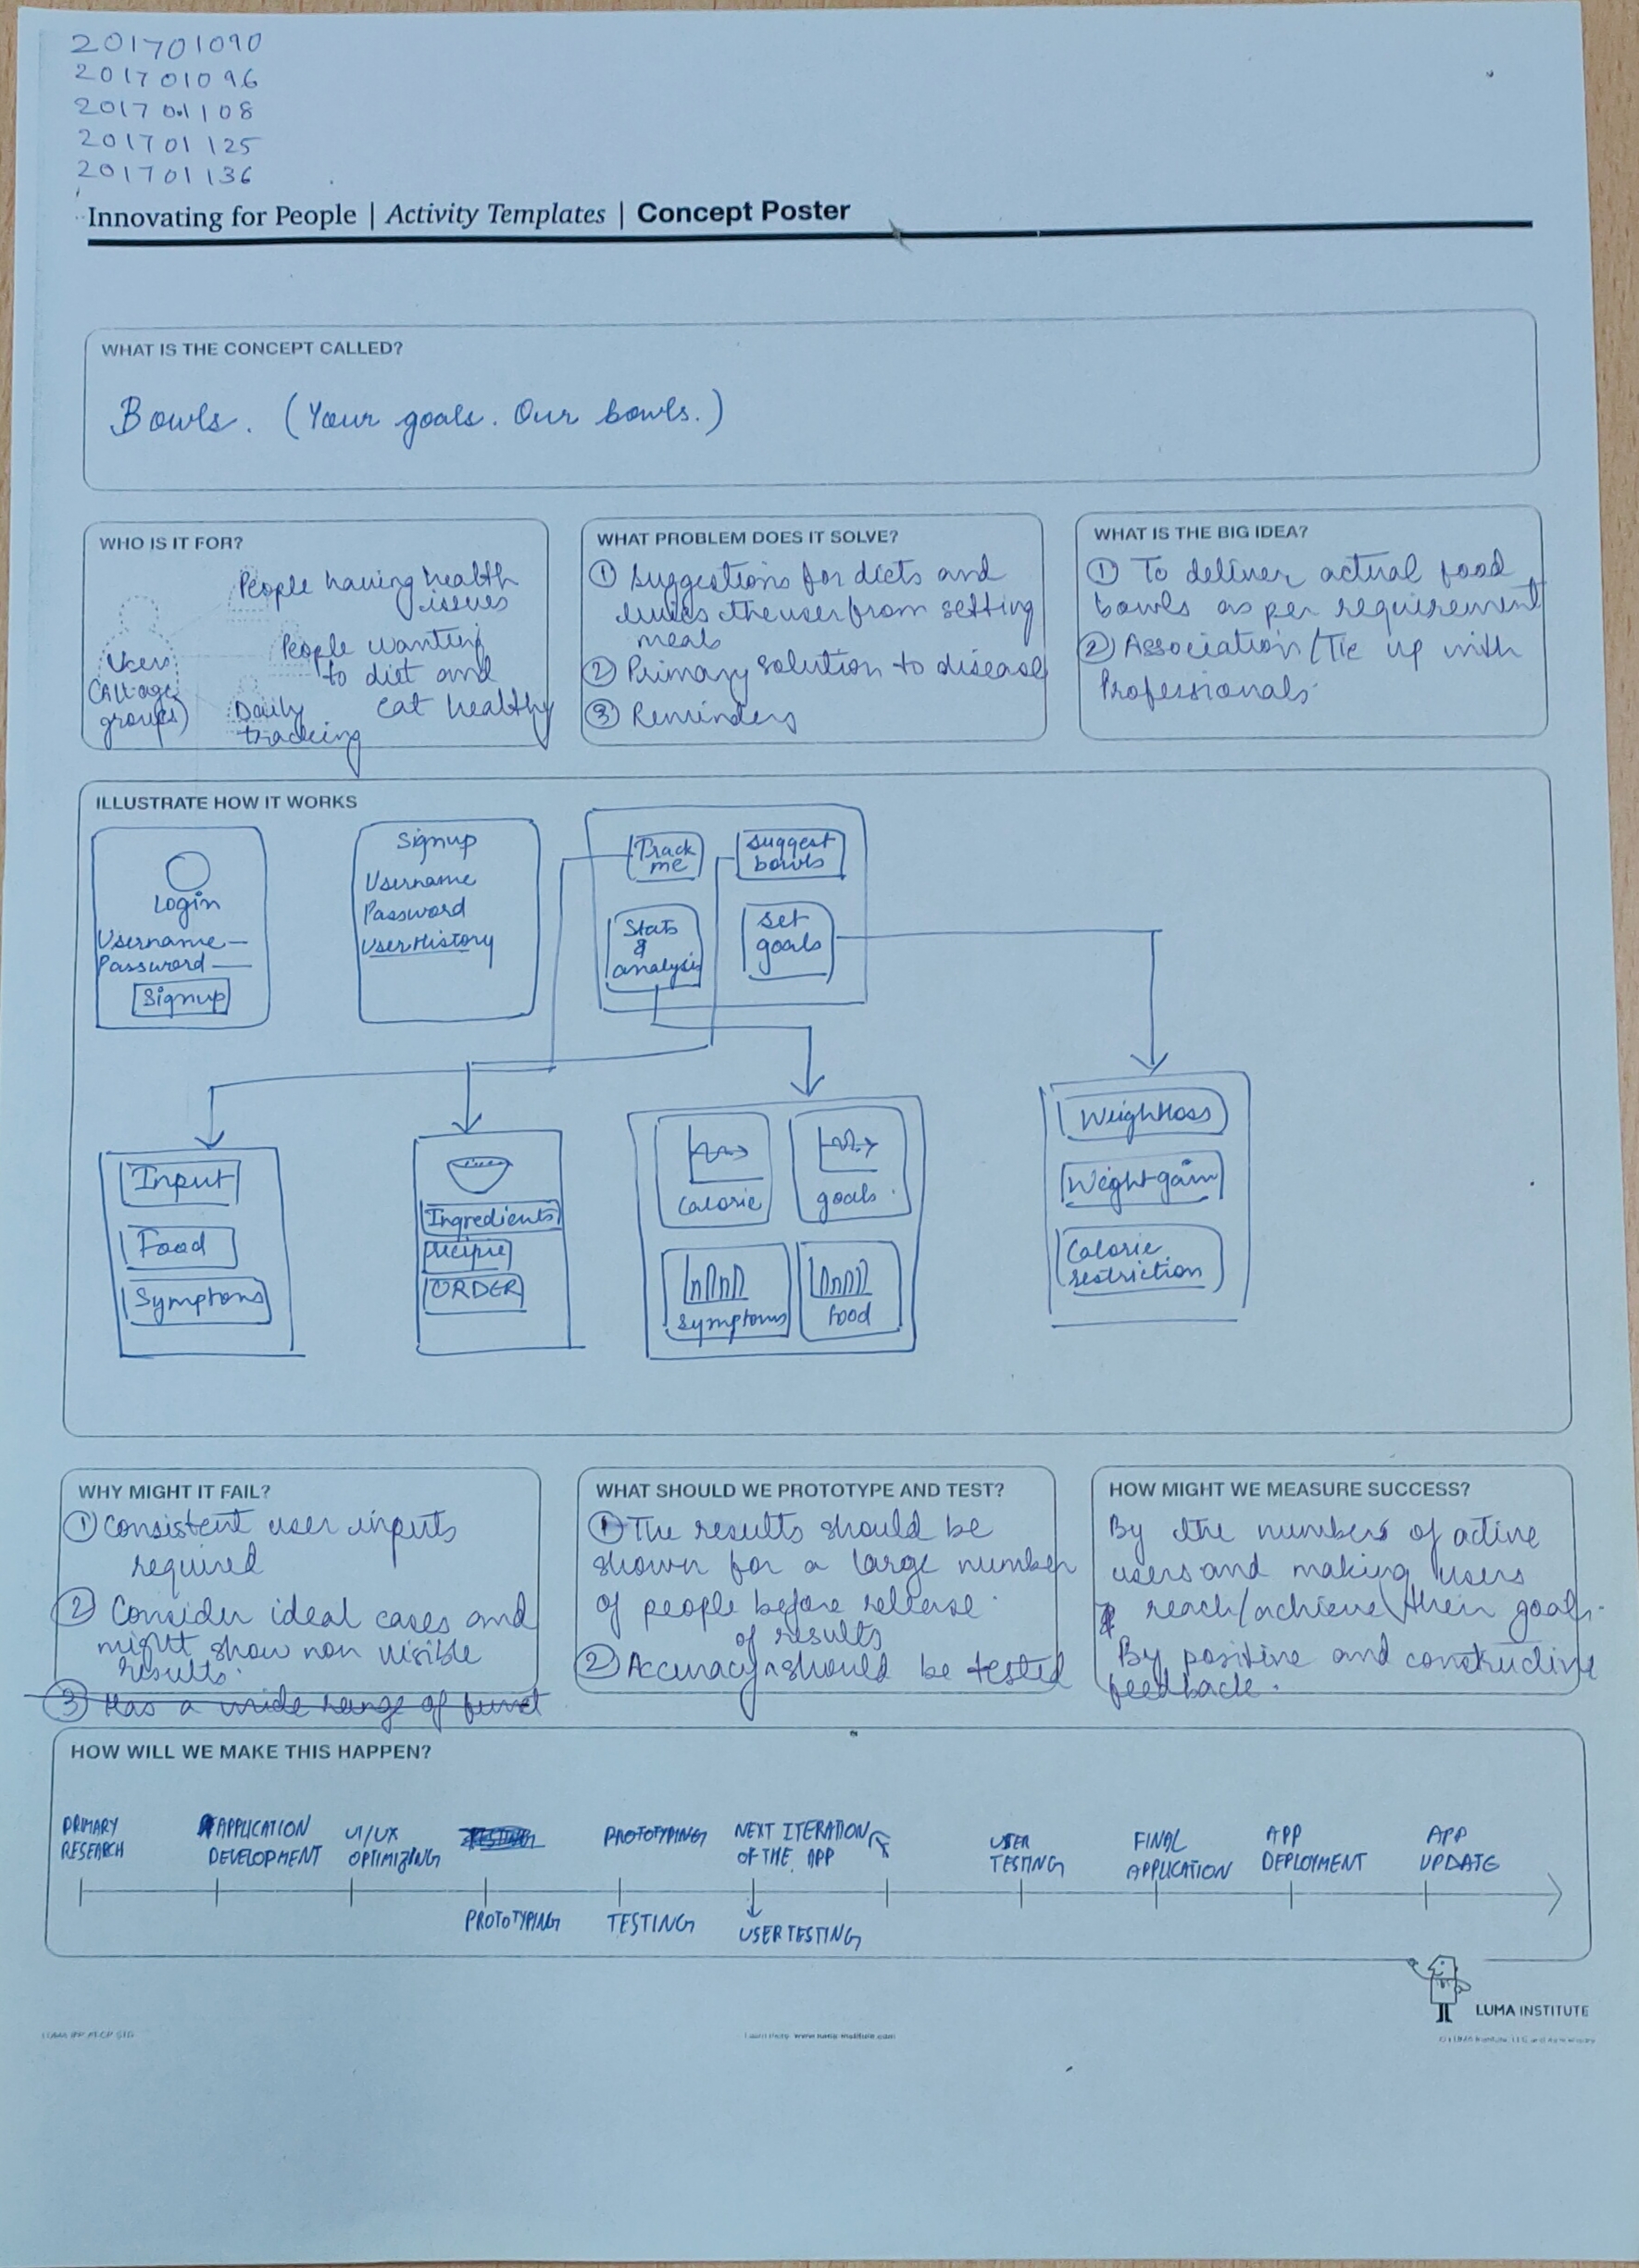 201701090
201701096
201701108
201701125
201701136
Innovating for People | Activity Templates | Concept Poster
WHAT IS THE CONCEPT CALLED?
Bowls. (Your goals. Our bowls.)
WHO IS IT FOR?
People having health
issues
People wanting
to diet and
eat healthy
Users
(All age
groups)
Daily
tracking
WHAT PROBLEM DOES IT SOLVE?
① Suggestions for diets and
the user from setting
meals
② Primary solution to disease
③ Reminders
WHAT IS THE BIG IDEA?
① To deliver actual food
bowls as per requirement
② Association/Tie up with
Professionals
ILLUSTRATE HOW IT WORKS
Login
Username
Password
Signup
Signup
Username
Password
User History
Track
me
suggest
bowls
Stats
&
analysis
set
goals
Input
Food
Symptoms
Ingredients
recipie
ORDER
Calorie
goals
symptoms
food
Weightloss
Weightgain
Calorie
restriction
WHY MIGHT IT FAIL?
① Consistent user inputs
required
② Consider ideal cases and
might show non visible
results.
③ Has a wide range of funct
WHAT SHOULD WE PROTOTYPE AND TEST?
① The results should be
shown for a large number
of people before release.
of results
② Accuracy should be tested
HOW MIGHT WE MEASURE SUCCESS?
By the numbers of active
users and making users
reach/achieve their goals.
By positive and constructive
feedback.
HOW WILL WE MAKE THIS HAPPEN?
PRIMARY
RESEARCH
APPLICATION
DEVELOPMENT
UI/UX
OPTIMIZING
PROTOTYPING
PROTOTYPING
TESTING
NEXT ITERATION
OF THE APP
USER TESTING
USER
TESTING
FINAL
APPLICATION
APP
DEPLOYMENT
APP
UPDATE
LUMA INSTITUTE